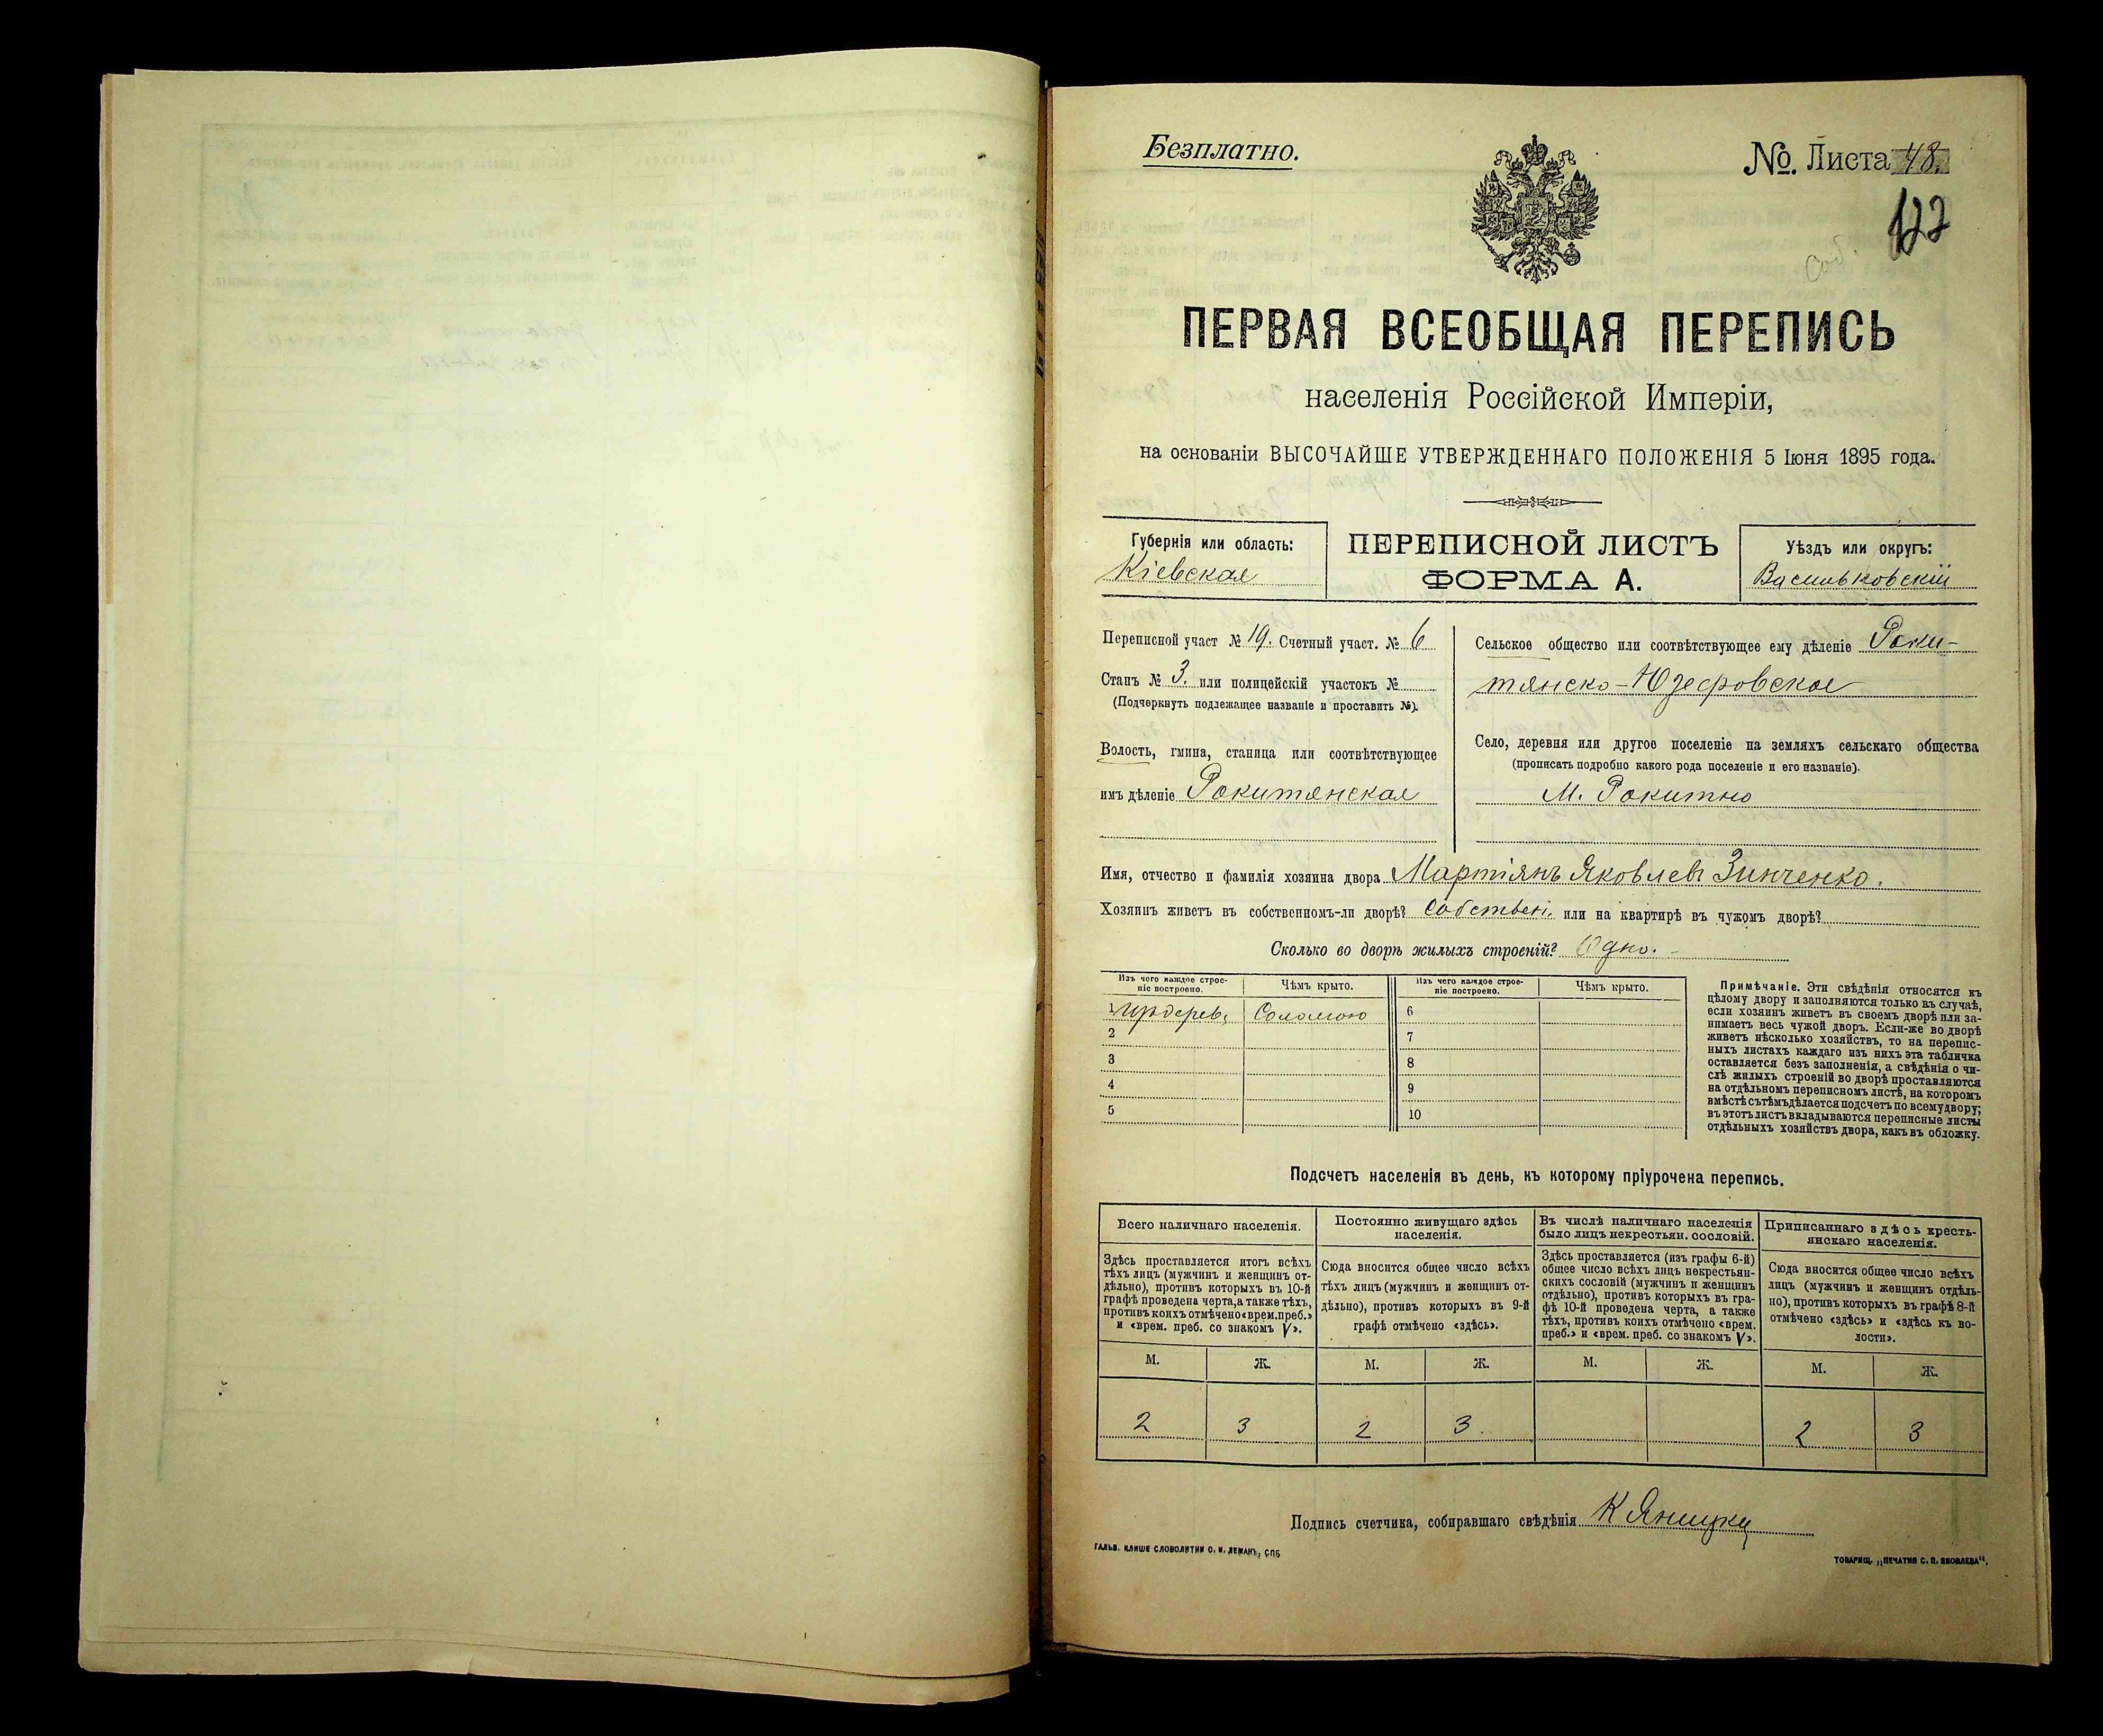 Безплатно.
№. Листа 48.
122
ПЕРВАЯ ВСЕОБЩАЯ ПЕРЕПИСЬ
населенія Россійской Имперіи,
на основаніи ВЫСОЧАЙШЕ УТВЕРЖДЕННАГО ПОЛОЖЕНІЯ 5 Іюня 1895 года.
Губернія или область:
Кіевская
ПЕРЕПИСНОЙ ЛИСТЪ
ФОРМА А.
Уѣздъ или округъ:
Васильковскій
Переписной участ № 19. Счетный участ. № 6
Станъ № 3. или полицейскій участокъ №
(Подчеркнуть подлежащее названіе и проставить №).
Волость, гмина, станица или соотвѣтствующее
имъ дѣленіе Рокитянская
Сельское общество или соотвѣтствующее ему дѣленіе Роки-
тянско-Юзефовское
Село, деревня или другое поселеніе на земляхъ сельскаго общества
(прописать подробно какого рода поселеніе и его названіе).
М. Рокитно
Имя, отчество и фамилія хозяина двора Мартіянъ Яковлевъ Зинченко.
Хозяинъ живетъ въ собственномъ-ли дворѣ? Собствен. или на квартирѣ въ чужомъ дворѣ?
Сколько во дворѣ жилыхъ строеній? Одно.
Изъ чего каждое строе-
ніе построено.
Чѣмъ крыто.
Изъ чего каждое строе-
ніе построено.
Чѣмъ крыто.
1 Соломою
2
3
4
5
6
7
8
9
10
Примѣчаніе. Эти свѣдѣнія относятся къ
цѣлому двору и заполняются только въ случаѣ,
если хозяинъ живетъ въ своемъ дворѣ или за-
нимаетъ весь чужой дворъ. Если-же во дворѣ
живетъ нѣсколько хозяйствъ, то на перепис-
ныхъ листахъ каждаго изъ нихъ эта табличка
оставляется безъ заполненія, а свѣдѣнія о чи-
слѣ жилыхъ строеній во дворѣ проставляются
на отдѣльномъ переписномъ листѣ, на которомъ
вмѣстѣ съ тѣмъ дѣлается подсчетъ по всему двору;
въ этотъ листъ вкладываются переписные листы
отдѣльныхъ хозяйствъ двора, какъ въ обложку.
Подсчетъ населенія въ день, къ которому пріурочена перепись.
Всего наличнаго населенія.
Здѣсь проставляется итогъ всѣхъ
тѣхъ лицъ (мужчинъ и женщинъ от-
дѣльно), противъ которыхъ въ 10-й
графѣ проведена черта, а также тѣхъ,
противъ коихъ отмѣчено «врем. преб.»
и «врем. преб. со знакомъ V».
Постоянно живущаго здѣсь
населенія.
Сюда вносится общее число всѣхъ
тѣхъ лицъ (мужчинъ и женщинъ от-
дѣльно), противъ которыхъ въ 9-й
графѣ отмѣчено «здѣсь».
Въ числѣ наличнаго населенія
было лицъ некрестьян. сословій.
Здѣсь проставляется (изъ графы 6-й)
общее число всѣхъ лицъ некрестьян-
скихъ сословій (мужчинъ и женщинъ
отдѣльно), противъ которыхъ въ гра-
фѣ 10-й проведена черта, а также
тѣхъ, противъ коихъ отмѣчено «врем.
преб.» и «врем. преб. со знакомъ V».
Приписаннаго здѣсь кресть-
янскаго населенія.
Сюда вносится общее число всѣхъ
лицъ (мужчинъ и женщинъ отдѣль-
но), противъ которыхъ въ графѣ 8-й
отмѣчено «здѣсь» и «здѣсь къ во-
лости».
М. Ж. М. Ж. М. Ж. М. Ж.
2 3 2 3 2 3
Подпись счетчика, собиравшаго свѣдѣнія К Яницкій
ГАЛЬВ. КЛИШЕ СЛОВОЛИТНИ О. И. ЛЕМАНЪ, СПБ
ТОВАРИЩ. „ПЕЧАТНЯ С. П. ЯКОВЛЕВА".